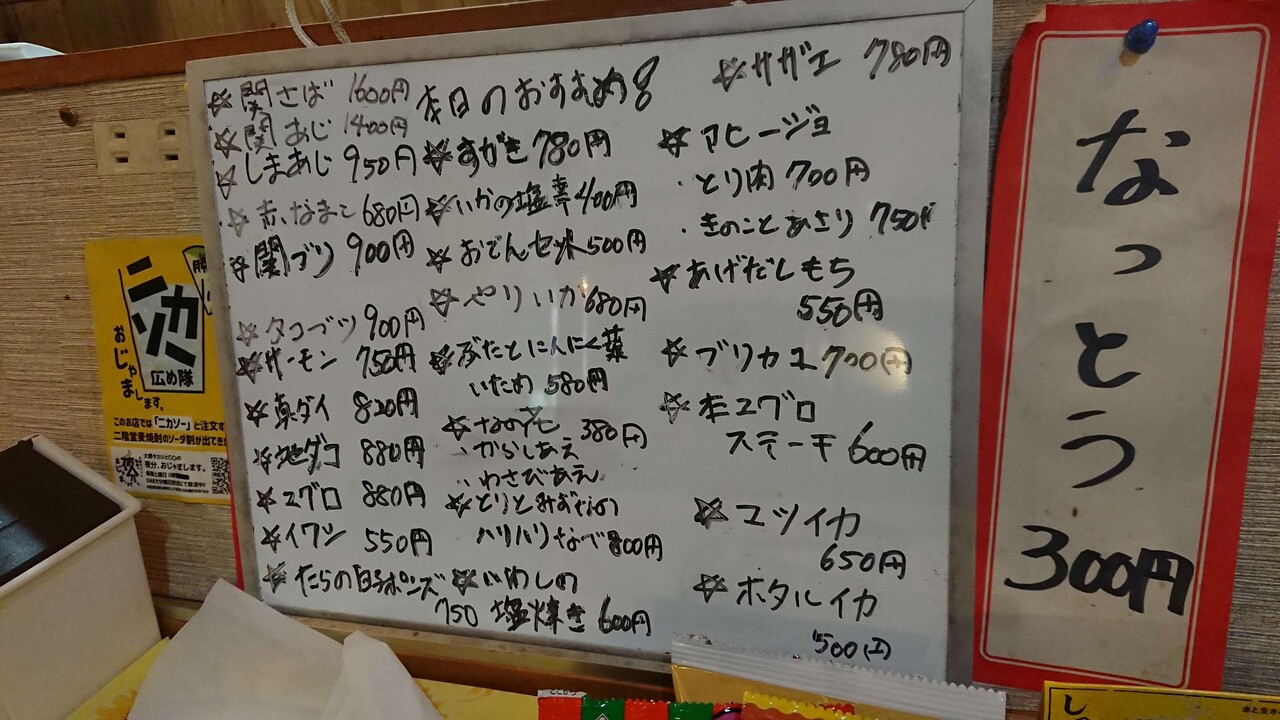 本日のおすすめ!
☆関さば 1600円
☆関あじ 1400円
☆しまあじ 950円
☆赤なまこ 680円
☆関ブリ 900円
☆タコブツ 900円
☆サーモン 750円
☆真ダイ 820円
☆地ダコ 880円
☆マグロ 880円
☆イワシ 550円
☆たらの白子ポンズ
750
☆すがき 780円
☆いかの塩辛 400円
☆おでんセット 500円
☆やりいか 680円
☆ぶたとにんにく葉
いため 580円
☆なの花 380円
・からしあえ
・わさびあえ
☆とりとみずなの
ハリハリなべ 800円
☆いわしの
塩焼き 600円
☆サザエ 780円
☆アヒージョ
・とり肉 700円
・きのことあさり 750円
☆あげだしもち
550円
☆ブリカマ 700円
☆本マグロ
ステーキ 600円
☆マツイカ
650円
☆ホタルイカ
500円
なっとう
300円
ニカソー
広め隊
おじゃまします。
このお店では「ニカソー」と注文す
二階堂麦焼酎のソーダ割が出てき
し